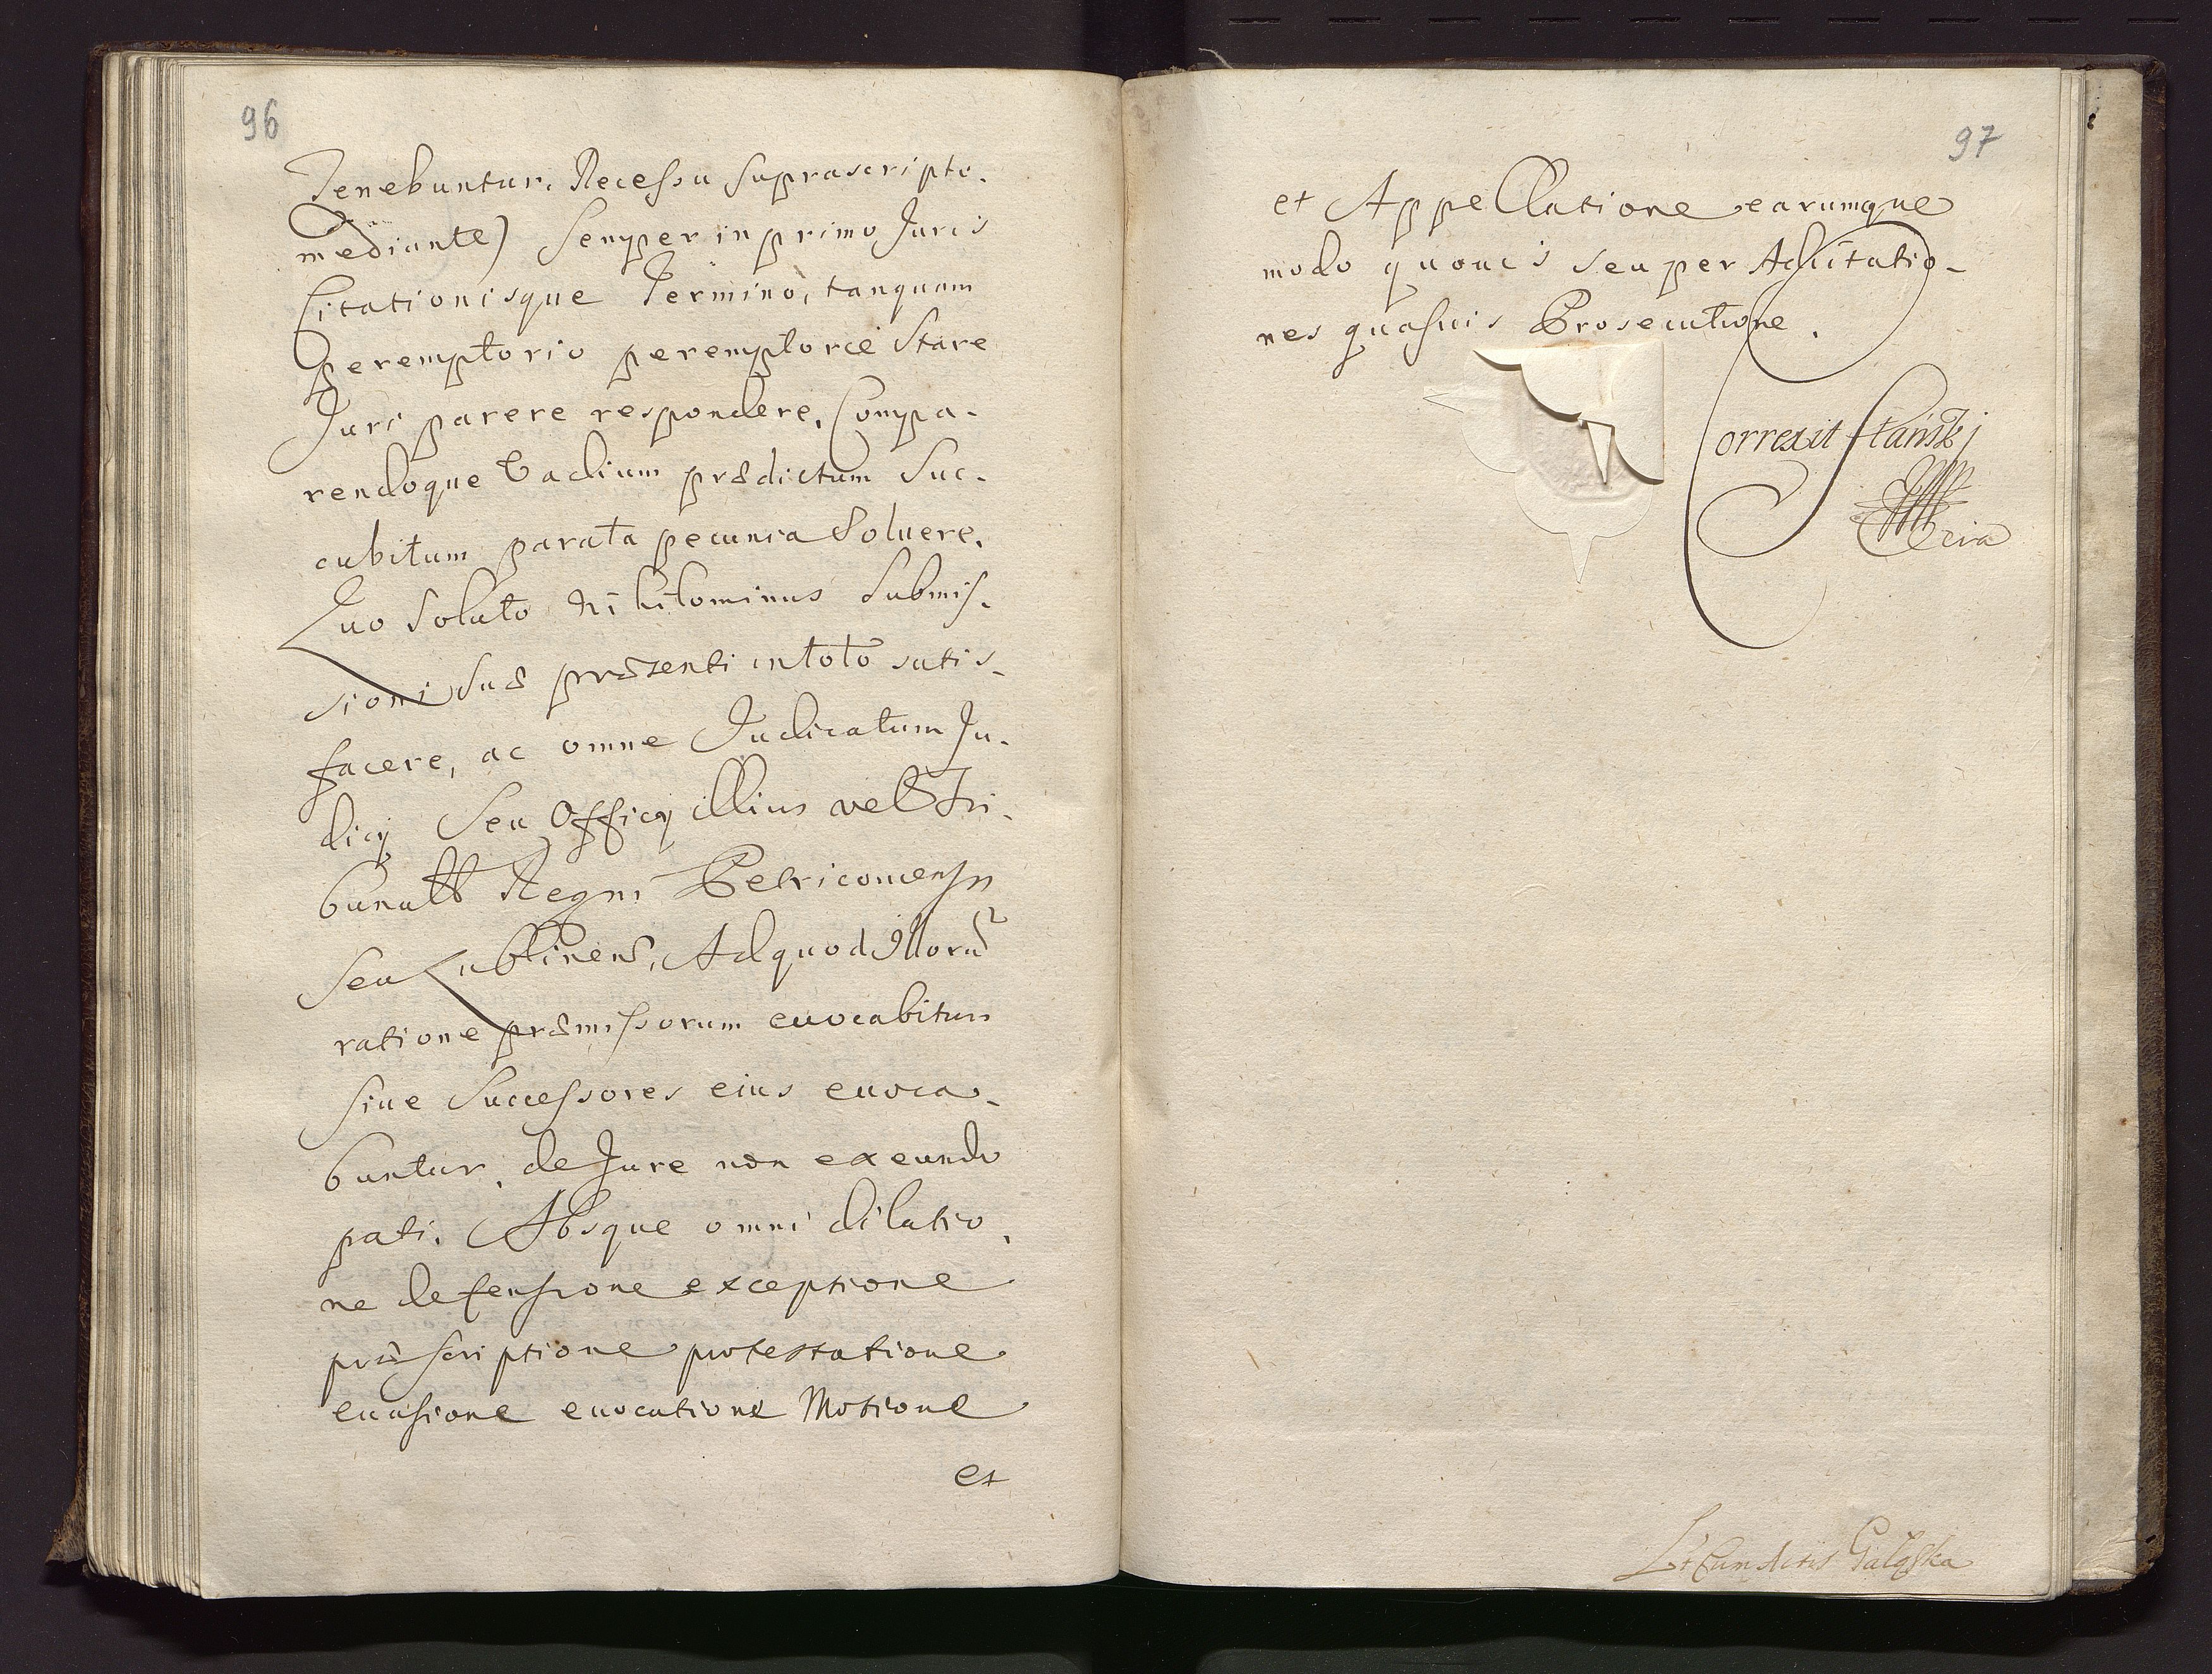 96
Tenebuntur, Recessu supra scripto.
mediante) Semper in primo Juris
Citationisque Termino, tanquam
peremptorio peremptorie Stare
Juri parere respondere, Compa-
rendoque Vadium prædictum Suc-
cubitum parata pecunia Soluere,
Quo Soluto Nihilominus Submis-
sioni Suæ præsenti in toto satis-
facere, ac omne Judicatum Ju-
dicij Seu Officij illius vel Tri-
bunall Regni Petricouien
Seu Lublinens, Ad quod Illorū
ratione præmissorum euocabitur
siue Successores eius euoca-
buntur, de Jure non exeundo
pati. Absque omni dilatio,
ne defensione exceptione
præscriptione protestatione
euasione euocatione Motione
et
97
et Appellatione earumque
modo quouis seu per Actitatio-
nes quasuis Prosecutione.
Correxit
Lt Cum Actis